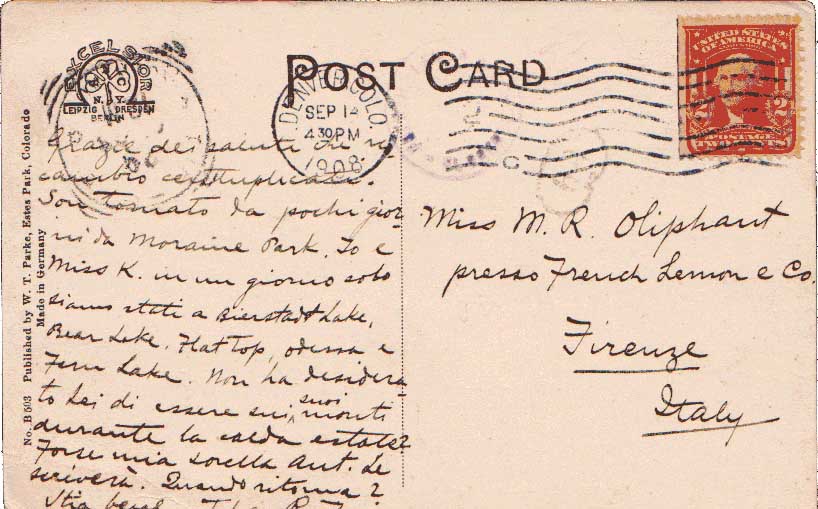 EXCELSIOR
N.Y.
LEIPZIG DRESDEN
BERLIN
POST CARD
DENVER COLO.
SEP 14
430 PM
1908
UNITED STATES
OF AMERICA
2 2
TWO CENTS
No. B 503 Published by W. T. Parke, Estes Park, Colorado
Made in Germany
Grazie dei saluti che ri
cambio centuplicati.
Son tornato da pochi gior
ni da Moraine Park. Io e
Miss K. in un giorno solo
siamo stati a Bierstadt Lake,
Bear Lake, Flat Top, Odessa e
Fern Lake. Non ha desidera
to Lei di essere sui suoi monti
durante la calda estate?
Forse mia sorella Ant. Le
scriverà. Quando ritorna?
Stia bene.
Miss M. R. Oliphant
presso French Lemon e Co.
Firenze
Italy